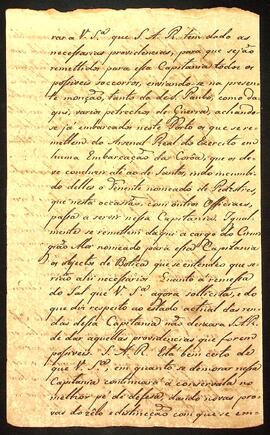 rar a V. S.ª que S. A. R. tem dado as
necessarias providencias, para que sejão
remettidos para essa Capitania todos os
possiveis soccorros, enviando-se na presen-
te monção, tanto de São Paulo, como da-
qui, varios petrechos de Guerra, achando-
se ja embarcados neste Porto os que se re-
mettem do Arsenal Real do Exercito em
huma Embarcação da Corôa, que os de-
ve conduzir até ao de Santos, indo incumbi-
do delles o Tenente nomeado de Pedestres,
que nesta occasião, com outros Officiaes,
passa a servir nessa Capitania. Igual-
mente se remettem daqui a cargo do Cirur-
gião Mor nomeado para essa Capitania
os objectos de Botica que se entendeo que se-
rião ali necessarios. Quanto á remessa
do Sal que V. S.ª agora sollicita, e do
que diz respeito ao estado actual das ren-
das dessa Capitania não deixará S. A. R.
de dar aquellas providencias que forem
possiveis. S. A. R. está bem certo de
que V. S.ª, em quanto se demorar nessa
Capitania continuará a conserva-la no
melhor pé de defesa, dando novas pro-
vas do zêlo e distincção com que se em-